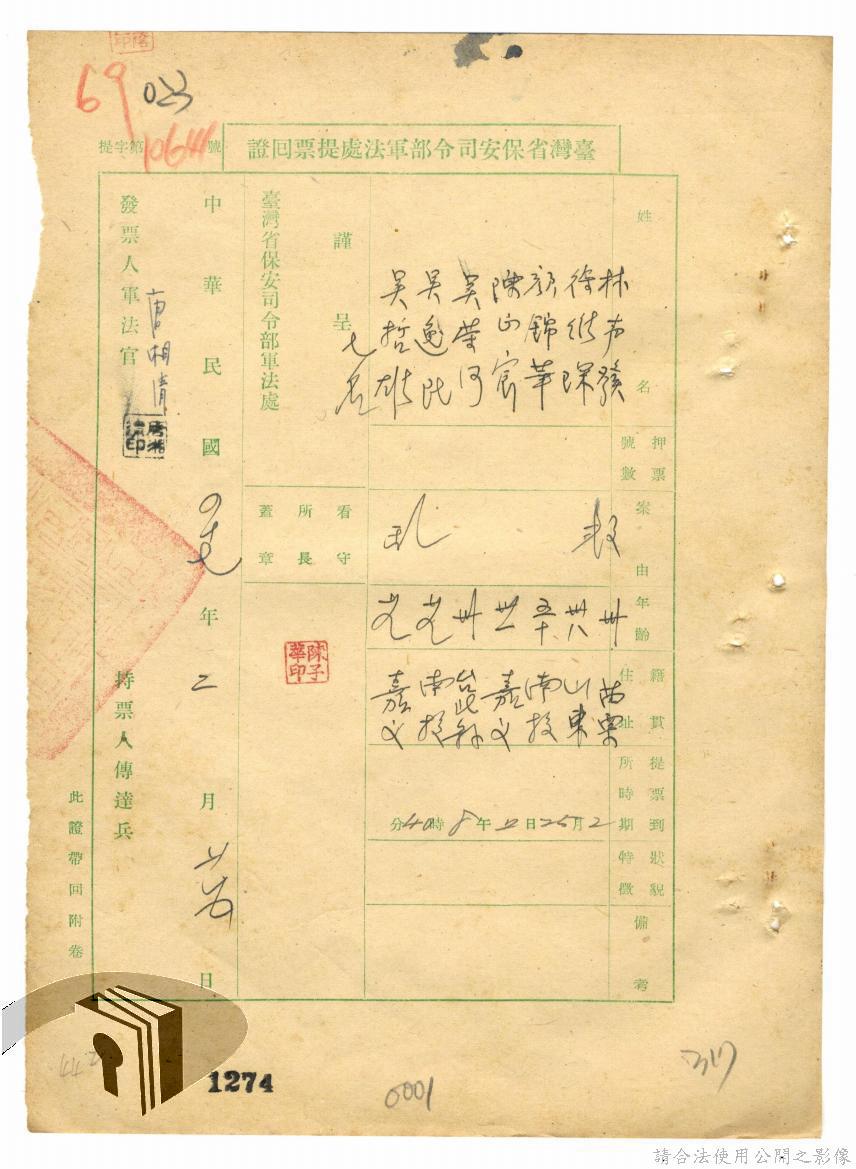 69
10641
提字第 號
臺灣省保安司令部軍法處提票回證
姓名
林 發
徐
顏錦華
陳山
吳榮河
吳逸民
吳哲雄
七名
押票號數
案由
叛亂
年齡
卅
廿八
五十
卅
籍貫住址
苗栗
山東
南投
嘉义
台北縣
南投
嘉义
提票到所時期
2月25日 午8時40分
狀貌特徵
備考
謹呈
臺灣省保安司令部軍法處
看守所長蓋章
陳子華印
中華民國 年二月 日
發票人軍法官
唐湘清
唐湘清印
持票人傳達兵
此證帶回附卷
442
1274
0001
317
請合法使用公開之影像